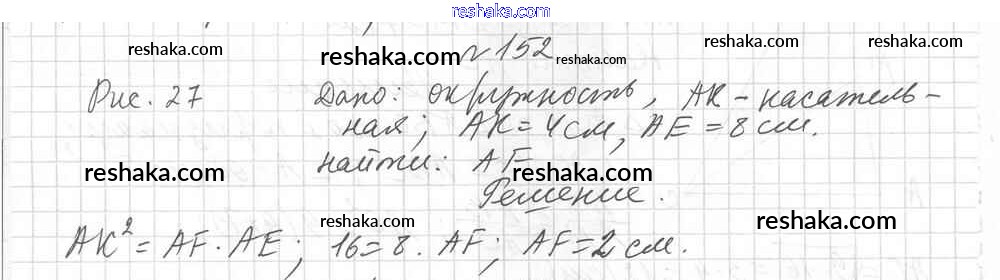 reshaka.com
№ 152
reshaka.com reshaka.com reshaka.com reshaka.com reshaka.com
Рис. 27 Дано: окружность, AK - касатель-
ная; AK = 4 см, AE = 8 см.
найти: AF
reshaka.com reshaka.com
Решение.
reshaka.com reshaka.com
AK² = AF · AE; 16 = 8 · AF; AF = 2 см.